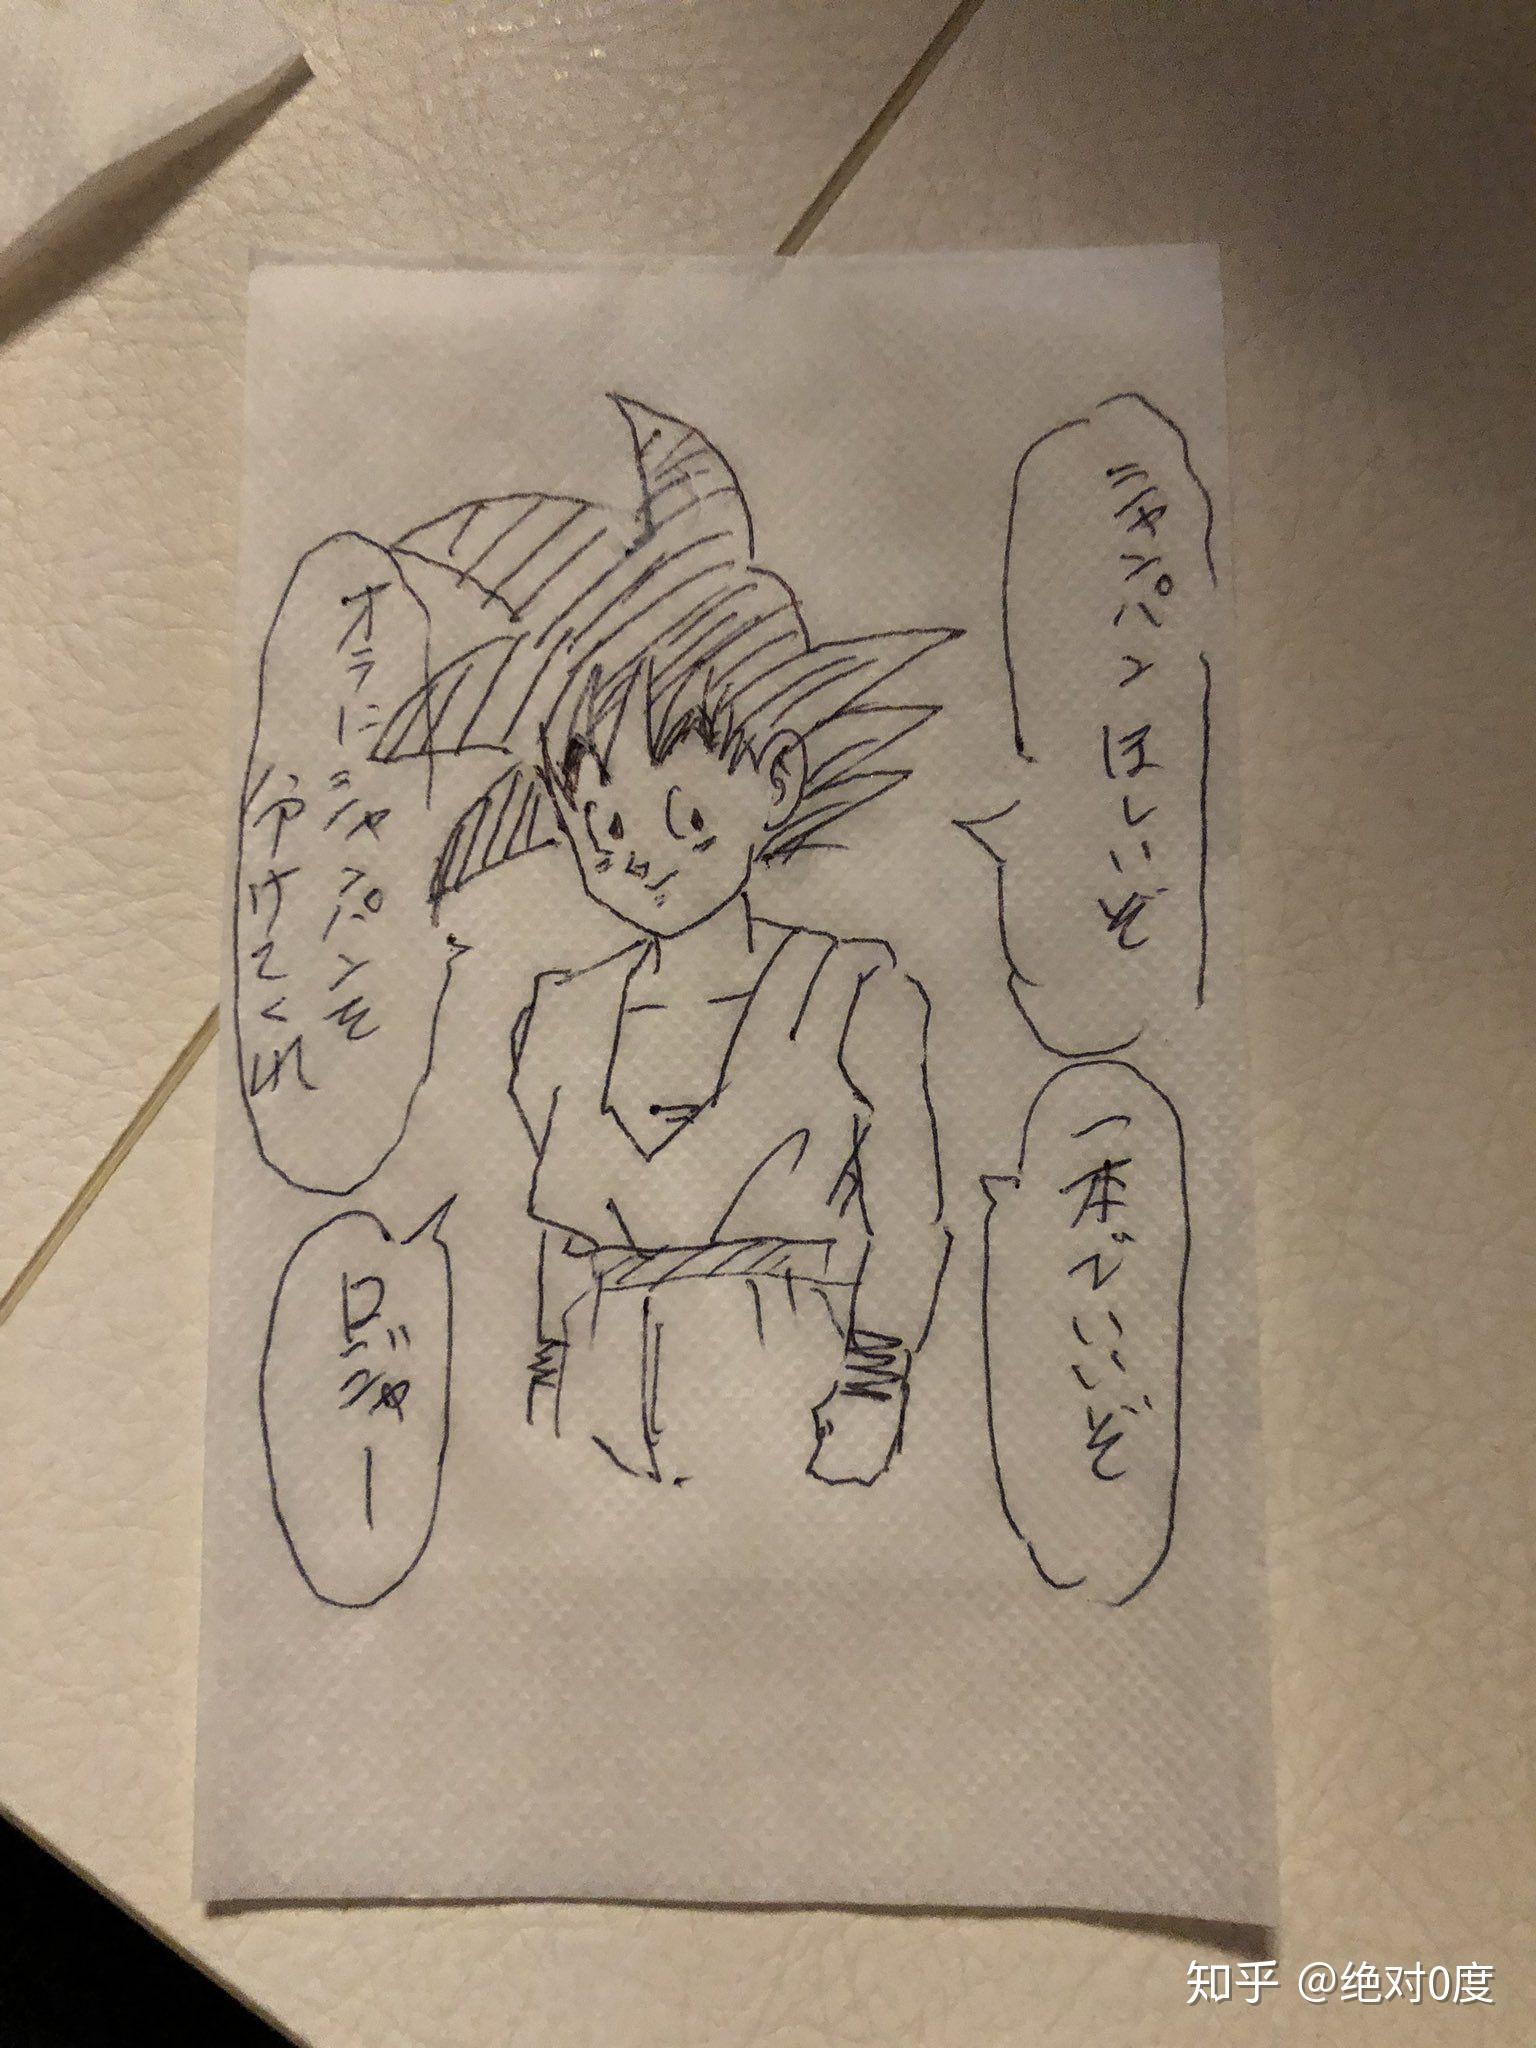 シャンパンほしいぞ
一本でいいぞ
オラにシャンパンを
分けてくれ
ロジャー
知乎 @绝对0度